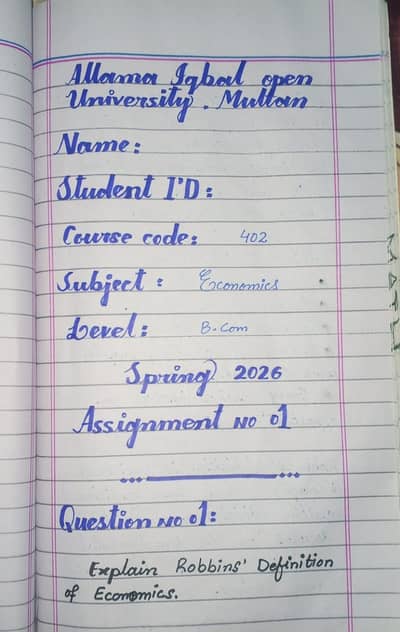 Allama Iqbal open
University. Multan
Name:
Student I'D:
Course code: 402
Subject: Economics
Level: B-Com
Spring 2026
Assignment No 01
Question No 01:
Explain Robbins' Definition
of Economics.